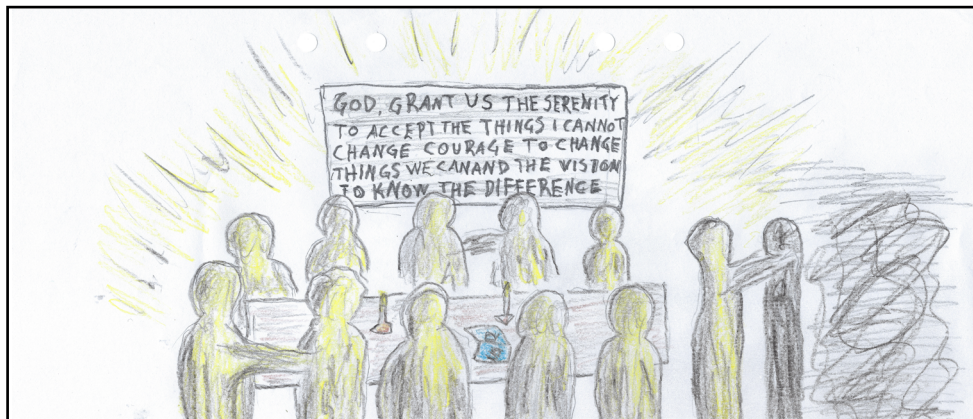 GOD, GRANT US THE SERENITY
TO ACCEPT THE THINGS I CANNOT
CHANGE COURAGE TO CHANGE
THINGS WE CANAND THE VISION
TO KNOW THE DIFFERENCE